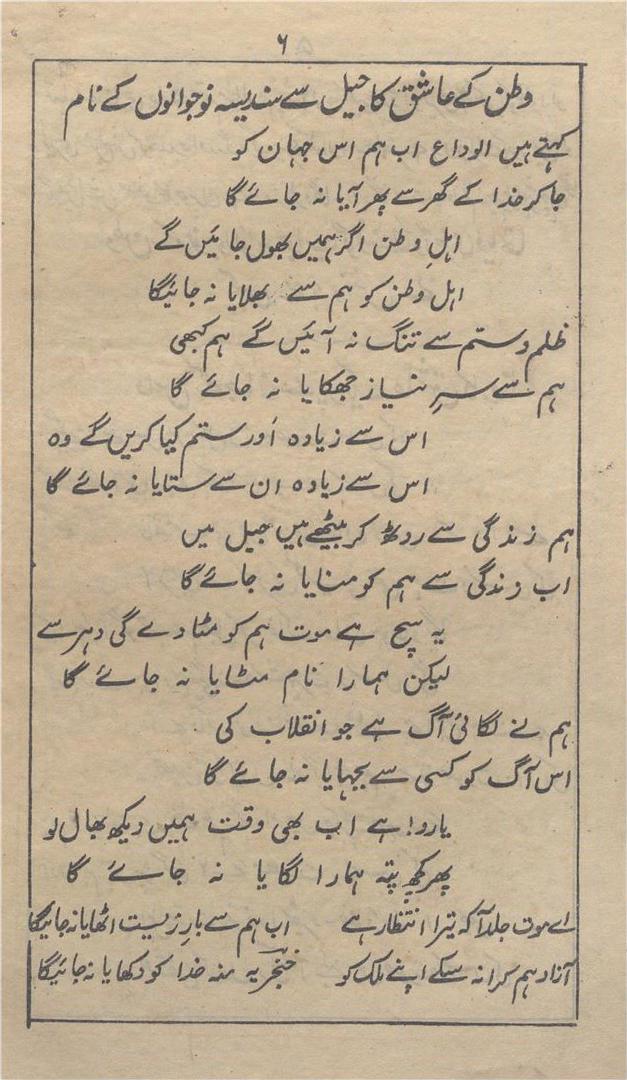 ۶
وطن کے عاشق کا جیل سے سندیسہ نوجوانوں کے نام
کہتے ہیں الوداع اب ہم اس جہان کو
جا کر خدا کے گھر سے پھر آیا نہ جائے گا
اہلِ وطن اگر ہمیں بھول جائیں گے
اہل وطن کو ہم سے بھلایا نہ جائیگا
ظلم و ستم سے تنگ نہ آئیں گے ہم کبھی
ہم سے سرِ نیاز جھکایا نہ جائے گا
اس سے زیادہ اور ستم کیا کریں گے وہ
اس سے زیادہ ان سے ستایا نہ جائے گا
ہم زندگی سے روٹھ کر بیٹھے ہیں جیل میں
اب زندگی سے ہم کو منایا نہ جائے گا
یہ سچ ہے موت ہم کو مٹا دے گی دہر سے
لیکن ہمارا نام مٹایا نہ جائے گا
ہم نے لگائی آگ ہے جو انقلاب کی
اس آگ کو کسی سے بجہایا نہ جائے گا
یارو! ہے اب بھی وقت ہمیں دیکھ بھال لو
پھر کچھ پتہ ہمارا لگایا نہ جائے گا
اے موت جلد آ کہ تیرا انتظار ہے اب ہم سے بارِ زیست اٹھایا نہ جائیگا
آزاد ہم کرا نہ سکے اپنے ملک کو خنجر یہ منہ خدا کو دکھایا نہ جائیگا